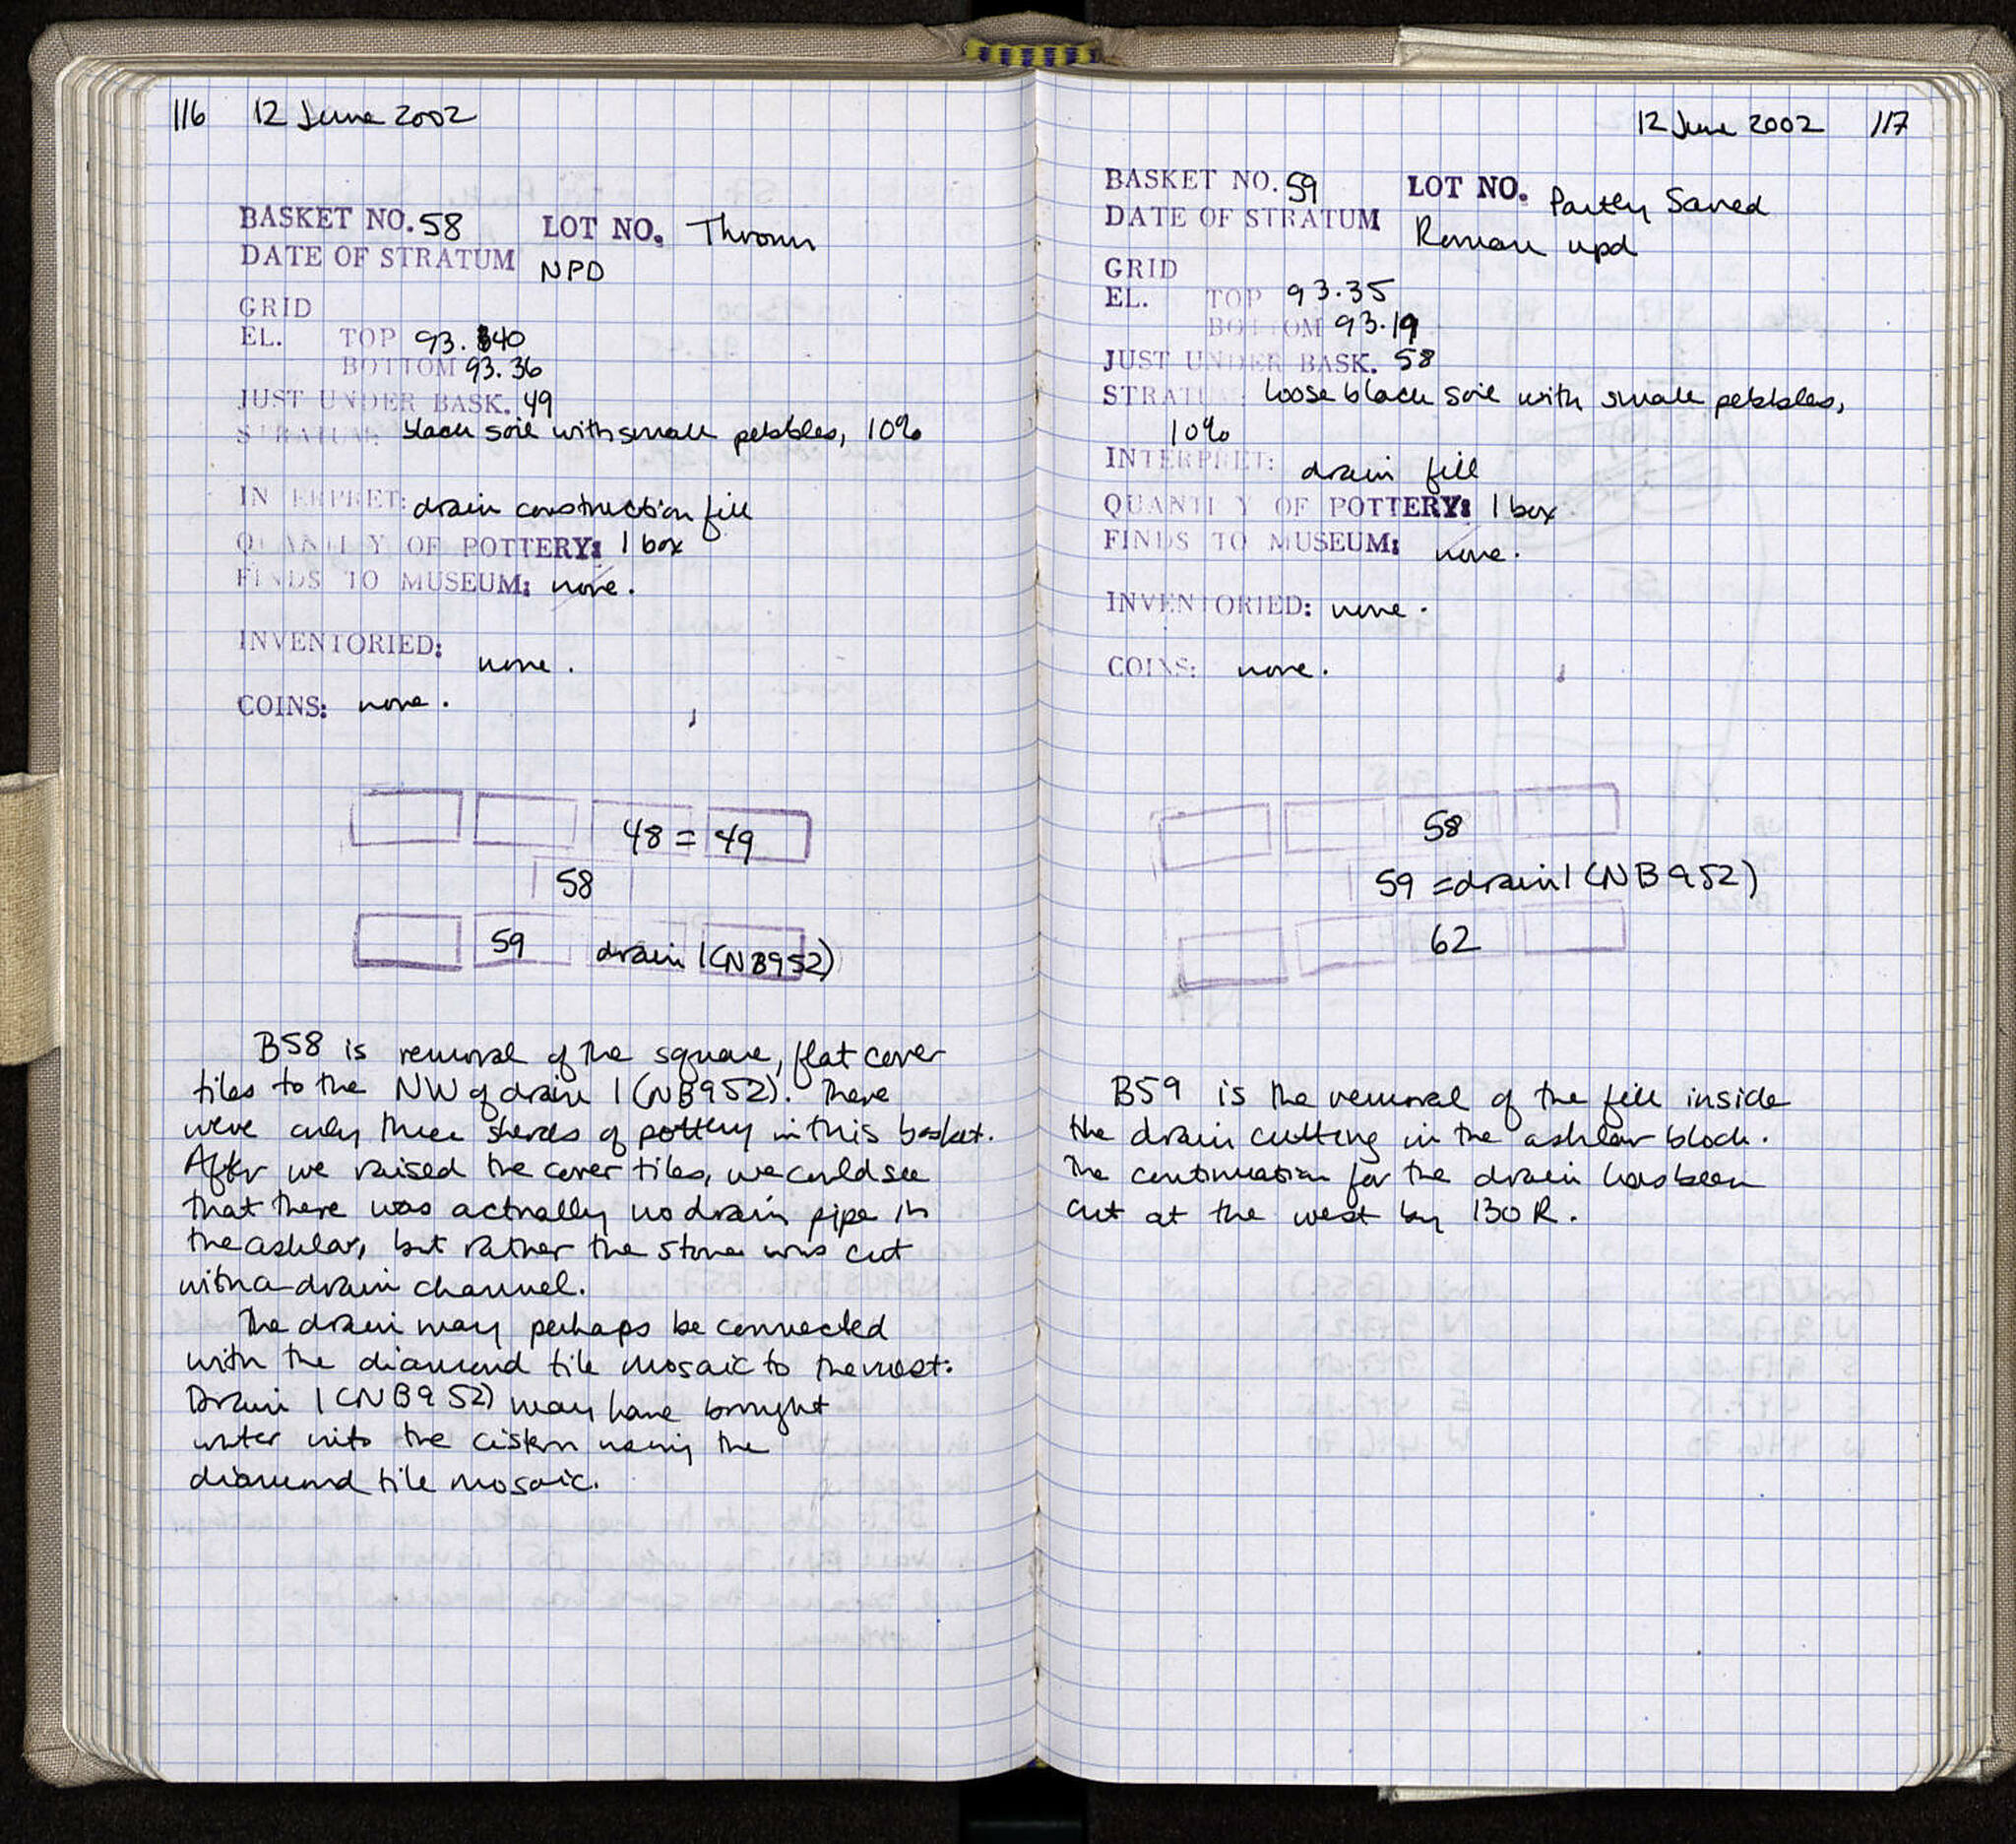 116 12 June 2002
BASKET NO. 58 LOT NO. Thrown
DATE OF STRATUM NPD
GRID
EL. TOP 93.40
BOTTOM 93.36
JUST UNDER BASK. 49
STRATUM: black soil with small pebbles, 10%
INTERPRET: drain construction fill
QUANTITY OF POTTERY: 1 box
FINDS TO MUSEUM: none.
INVENTORIED: none.
COINS: none.
48 = 49
58
59 drain 1 (NB952)
B58 is removal of the square, flat cover
tiles to the NW of drain 1 (NB952). There
were only three sherds of pottery in this basket.
After we raised the cover tiles, we could see
that there was actually no drain pipe in
the ashlar, but rather the stone was cut
with a drain channel.
The drain may perhaps be connected
with the diamond tile mosaic to the west.
Drain 1 (NB952) may have brought
water into the cistern using the
diamond tile mosaic.
12 June 2002 117
BASKET NO. 59 LOT NO. Partly Saved
DATE OF STRATUM Roman upd
GRID
EL. TOP 93.35
BOTTOM 93.19
JUST UNDER BASK. 58
STRATUM: loose black soil with small pebbles,
10%
INTERPRET: drain fill
QUANTITY OF POTTERY: 1 box
FINDS TO MUSEUM: none.
INVENTORIED: none.
COINS: none.
58
59 = drain 1 (NB952)
62
B59 is the removal of the fill inside
the drain cutting in the ashlar block.
The continuation for the drain has been
cut at the west by 130R.